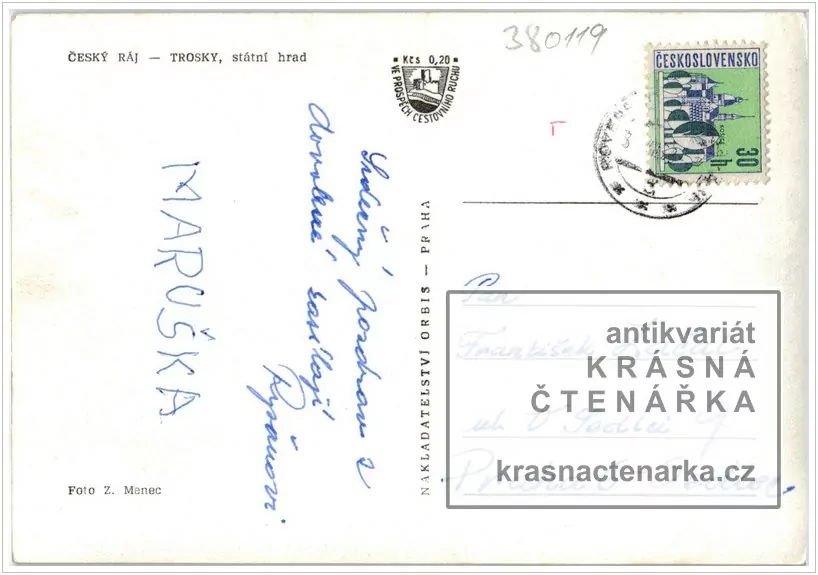 ČESKÝ RÁJ — TROSKY, státní hrad
Kčs 0,20
VE PROSPĚCH CESTOVNÍHO RUCHU
380119
ČESKOSLOVENSKO
30 h
Srdečný pozdrav z
dovolené zasílají
MARUŠKA
NAKLADATELSTVÍ ORBIS — PRAHA
Pan
František
V Sedlci 9
antikvariát
KRÁSNÁ
ČTENÁŘKA
krasnactenarka.cz
Foto Z. Menec